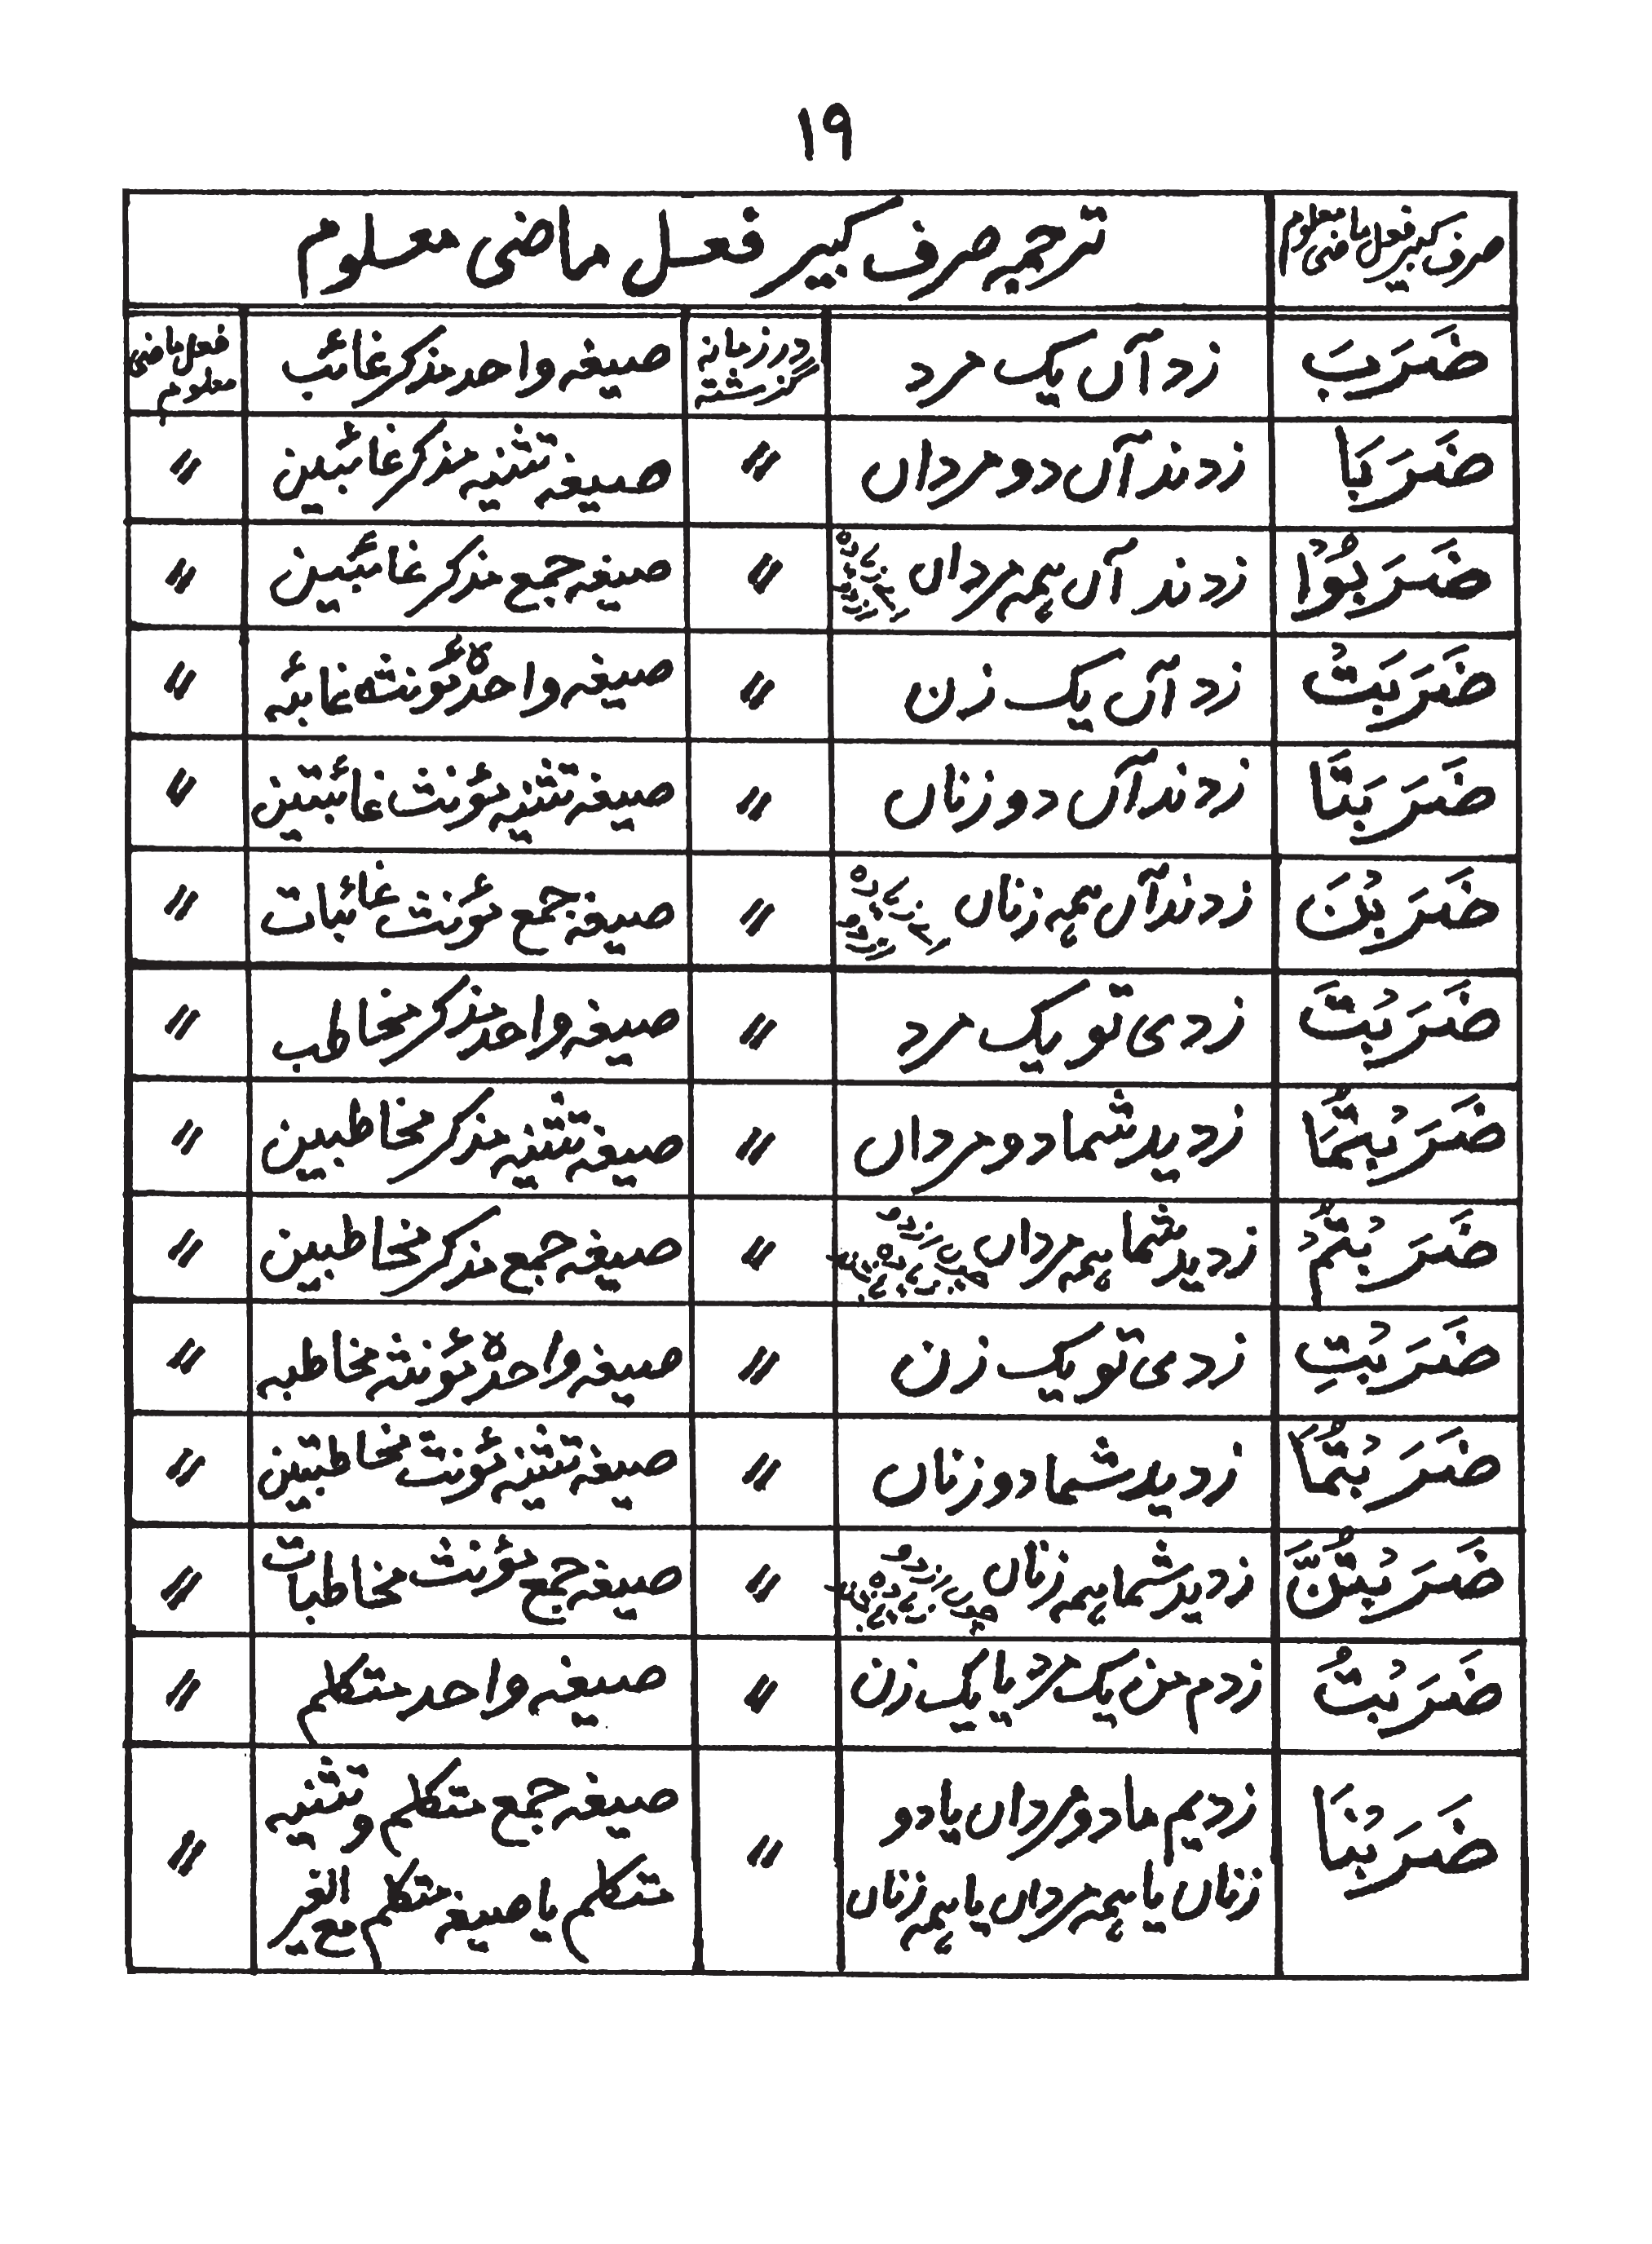 ۱۹
صرف کبیر فعل ماضی معلوم	ترجمہ صرف کبیر فعل ماضی معلوم
ضَرَبَ	زد آں یک مرد	در زمانہ گزشتہ	صیغہ واحد مذکر غائب	فعل ماضی معلوم
ضَرَبَا	زدند آں دو مرداں	〃	صیغہ تثنیہ مذکر غائبین	〃
ضَرَبُوْا	زدند آں ہمہ مرداں	〃	صیغہ جمع مذکر غائبین	〃
ضَرَبَتْ	زد آں یک زن	〃	صیغہ واحدہ مؤنثہ غائبہ	〃
ضَرَبَتَا	زدند آں دو زناں	〃	صیغہ تثنیہ مؤنث غائبتین	〃
ضَرَبْنَ	زدند آں ہمہ زناں	〃	صیغہ جمع مؤنث غائبات	〃
ضَرَبْتَ	زدی تو یک مرد	〃	صیغہ واحد مذکر مخاطب	〃
ضَرَبْتُمَا	زدید شما دو مرداں	〃	صیغہ تثنیہ مذکر مخاطبین	〃
ضَرَبْتُمْ	زدید شما ہمہ مرداں	〃	صیغہ جمع مذکر مخاطبین	〃
ضَرَبْتِ	زدی تو یک زن	〃	صیغہ واحدہ مؤنثہ مخاطبہ	〃
ضَرَبْتُمَا	زدید شما دو زناں	〃	صیغہ تثنیہ مؤنث مخاطبتین	〃
ضَرَبْتُنَّ	زدید شما ہمہ زناں	〃	صیغہ جمع مؤنث مخاطبات	〃
ضَرَبْتُ	زدم من یک مرد یا یک زن	〃	صیغہ واحد متکلم	〃
ضَرَبْنَا	زدیم ما دو مرداں یا دو	〃	صیغہ جمع متکلم و تثنیہ	〃
زناں یا ہمہ مرداں یا ہمہ زناں	متکلم یا صیغہ متکلم مع الغیر